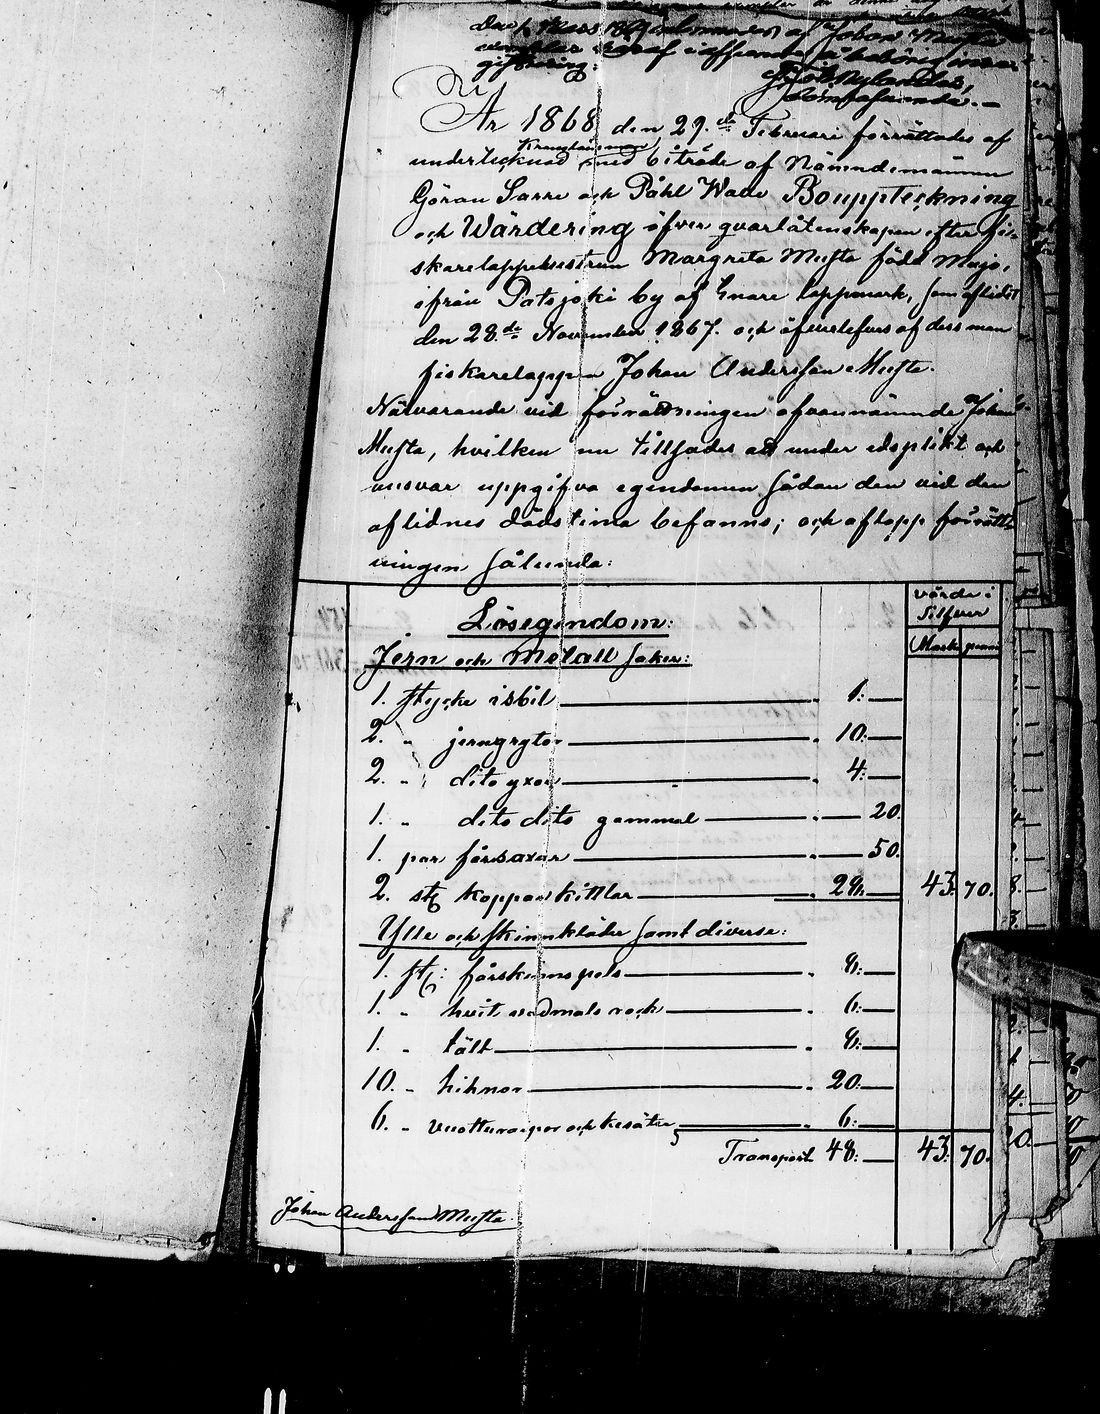 af Johan Musta
giftering:
År 1868 den 29.de Februari förrättades af
undertecknad Kronolänsman med biträde af Nämndemännen
Göran Sarre och Påhl Wade Bouppteckning
och Wärdering öfver qvarlåtenskapen efter fi-
skarelappehustrun Margreta Musta född Mujo,
ifrån Patsjoki by af Enare lappmark, som aflidit
den 28.de November 1867. och öfverlefves af dess man
fiskarelappen Johan Andersson Musta.
Närvarande vid förrättningen ofvannämnde Johan
Musta, hvilken nu tillsades att under edsplikt och
ansvar uppgifva egendomen sådan den vid den
aflidnes dödstima befanns; och aflopp förrätt
ningen sålunda:
värde i
Silfver
Lösegendom:
Mark penni
Jern och Metall saker:
1. stycke isbil 1:
2. " jerngrytor 10:
2. " dito yxor 4:
1. " dito dito gammal 20.
1. par fårsaxar 50.
2. st: kopparkittlar 28: 43. 70.
Ylle och skinnkläder samt diverse:
1. st: fårskinnspels 8:
1. " hvit vadmals rock 6:
1. " tält 8:
10. " hihnor 20:
6. " vuotturaipor och kesäter 6:
Transport 48: 43. 70.
Johan Andersson Musta.